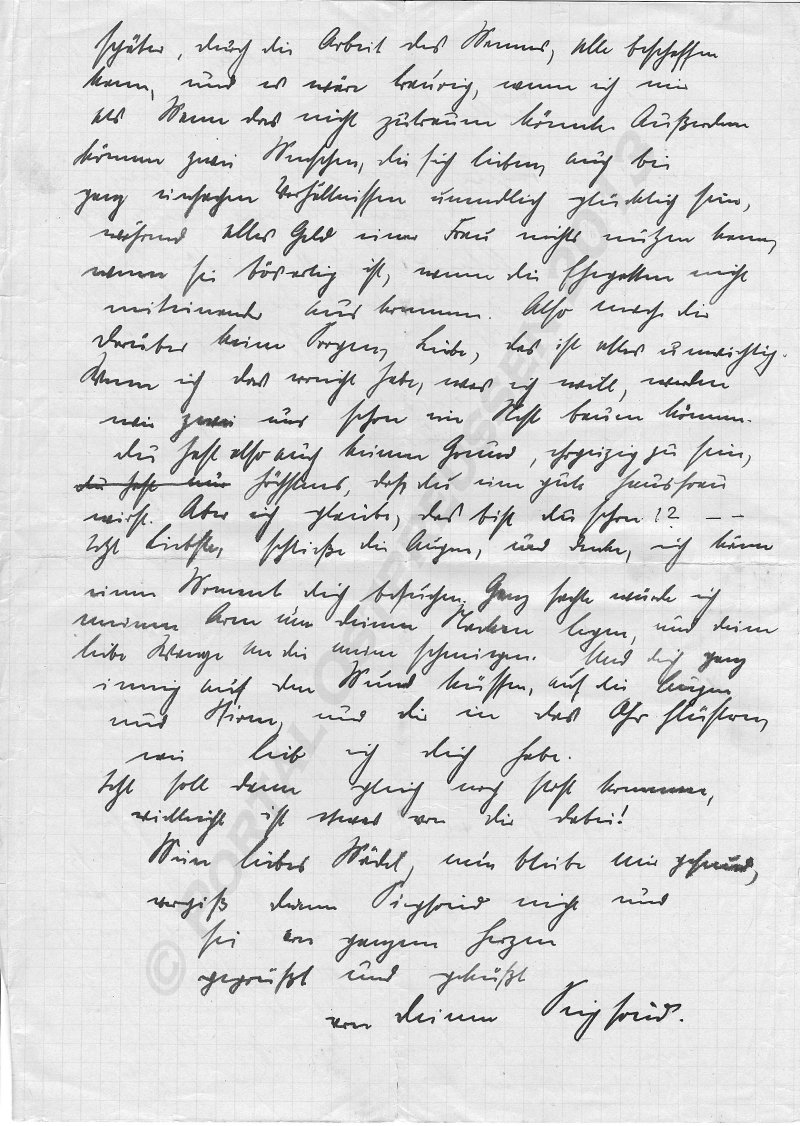 später, durch die Arbeit des Mannes, alle beschaffen
kann, und es wäre traurig, wenn ich mir
als Mann das nicht zutrauen könnte. Außerdem
können zwei Menschen, die sich lieben, auch bei
ganz einfachen Verhältnissen unendlich glücklich sein,
während alles Geld einer Frau nichts nützen kann,
wenn sie bösartig ist, wenn die Ehegatten nicht
miteinander auskommen. Also mach dir
darüber keine Sorgen, Liebe, das ist alles unwichtig.
Wenn ich das erreicht habe, was ich will, werden
wir zwei uns schon ein Nest bauen können.
Du hast also auch keinen Grund, ehrgeizig zu sein,
du hast nur höchstens, daß du eine gute Hausfrau
wirst. Aber ich glaube, das bist du schon!? – –
Jetzt Liebste, schließe die Augen, und denke, ich käme
einen Moment dich besuchen. Ganz sachte würde ich
meinen Arm um deinen Nacken legen, und deine
liebe Wange an die meine schmiegen. Und dich ganz
innig auf den Mund küssen, auf die Augen
und Stirn, und dir in das Ohr flüstern,
wie lieb ich dich habe.
Jetzt soll dann gleich noch Post kommen,
vielleicht ist etwas von dir dabei!
Mein liebes Mädel, nun bleibe mir gesund,
vergiß deinen Siegfried nicht und
sei von ganzem Herzen
gegrüßt und geküßt
von deinem Siegfried.
© PORTAL OSTPREUSSEN 2023